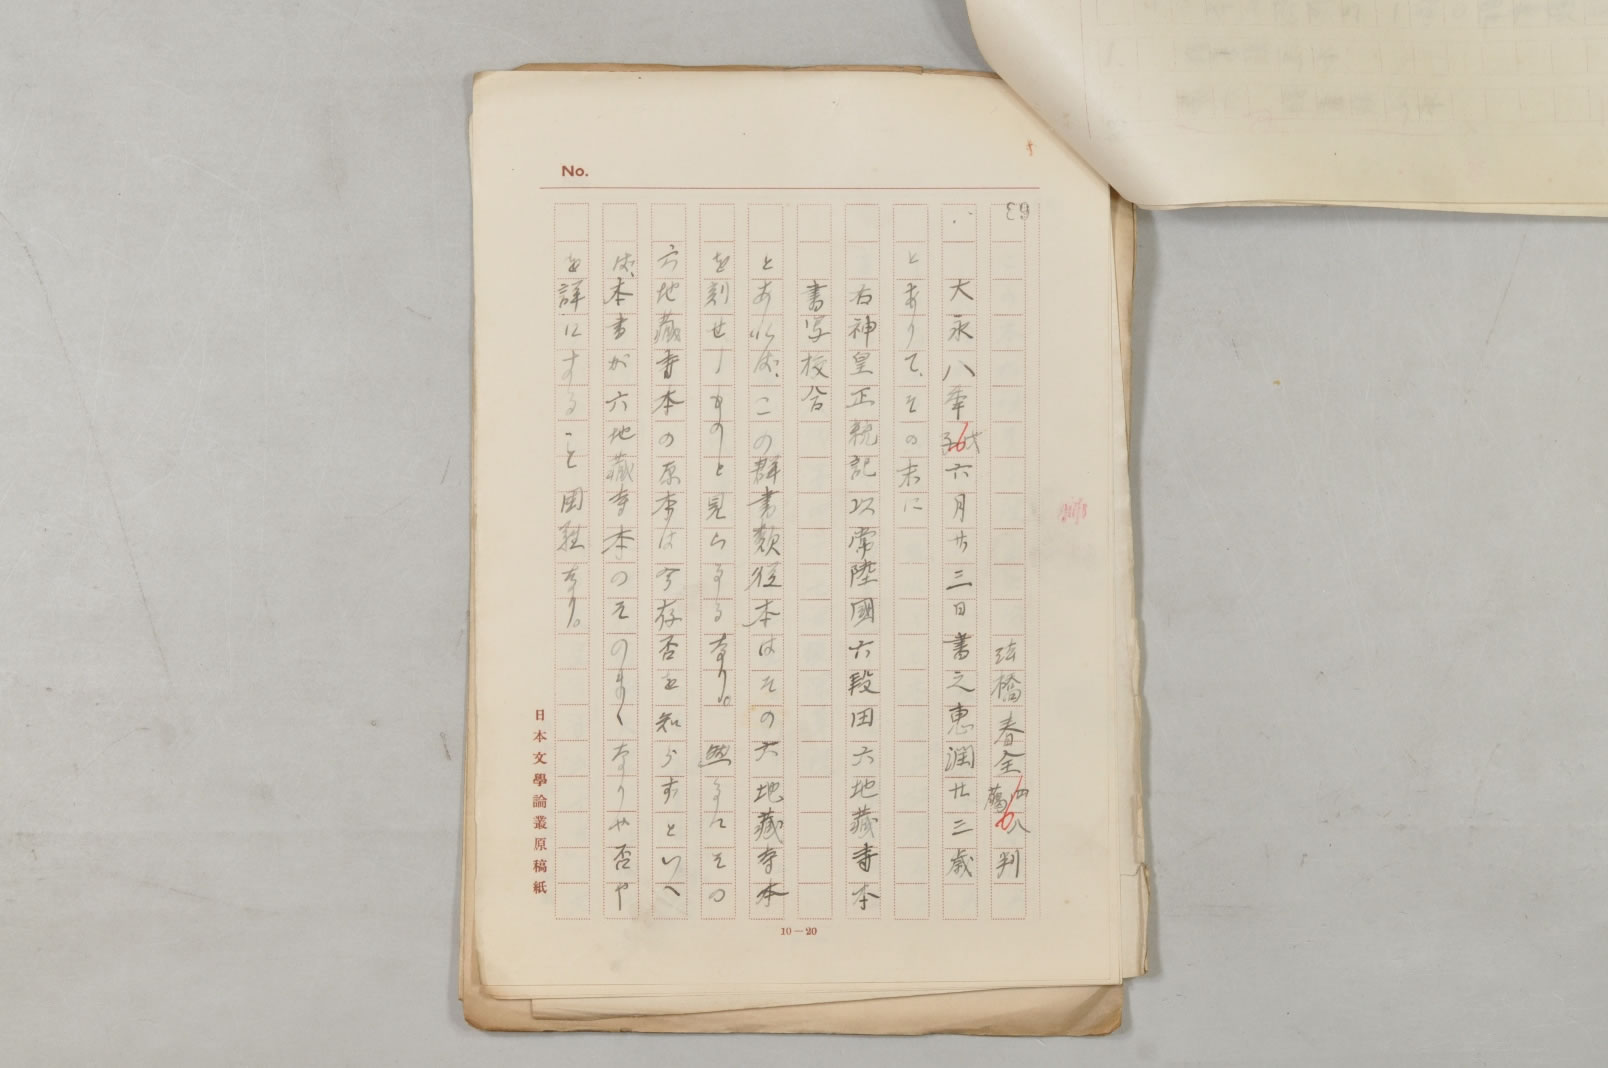 No.
39
法橋春全四八
﨟判
大永八年戊子六月廿三日書之恵潤廿三歳
とありて、その末に
右神皇正統記以常陸國六段田六地藏寺本
書写校合
とあれば、この群書類従本はその六地藏寺本
を刻せしものと見らるゝなり。然るにその
六地藏寺本の原本は今存否を知らずといへ
ば、本書が六地藏寺本のそのまゝなりや否や
を詳にすること困難なり。
日本文學論叢原稿紙
10—20